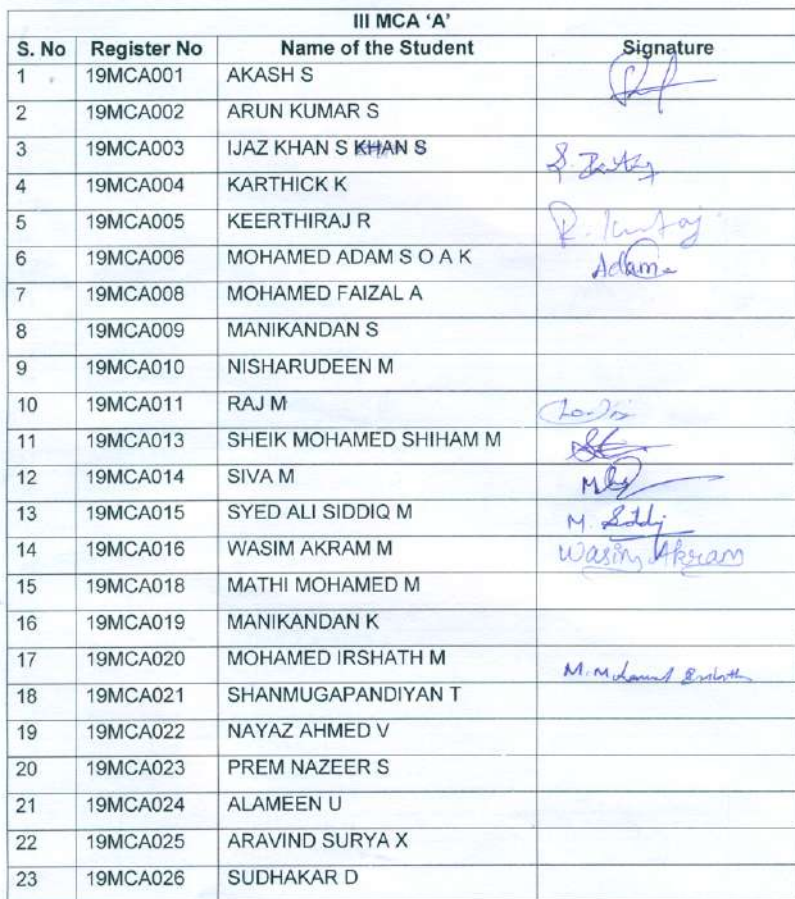 III MCA 'A'
S. No Register No Name of the Student Signature
1 19MCA001 AKASH S
2 19MCA002 ARUN KUMAR S
3 19MCA003 IJAZ KHAN S KHAN S
4 19MCA004 KARTHICK K
5 19MCA005 KEERTHIRAJ R R.
6 19MCA006 MOHAMED ADAM S O A K Adam
7 19MCA008 MOHAMED FAIZAL A
8 19MCA009 MANIKANDAN S
9 19MCA010 NISHARUDEEN M
10 19MCA011 RAJ M
11 19MCA013 SHEIK MOHAMED SHIHAM M
12 19MCA014 SIVA M
13 19MCA015 SYED ALI SIDDIQ M M.
14 19MCA016 WASIM AKRAM M Wasim Akram
15 19MCA018 MATHI MOHAMED M
16 19MCA019 MANIKANDAN K
17 19MCA020 MOHAMED IRSHATH M M. Mohamed
18 19MCA021 SHANMUGAPANDIYAN T
19 19MCA022 NAYAZ AHMED V
20 19MCA023 PREM NAZEER S
21 19MCA024 ALAMEEN U
22 19MCA025 ARAVIND SURYA X
23 19MCA026 SUDHAKAR D